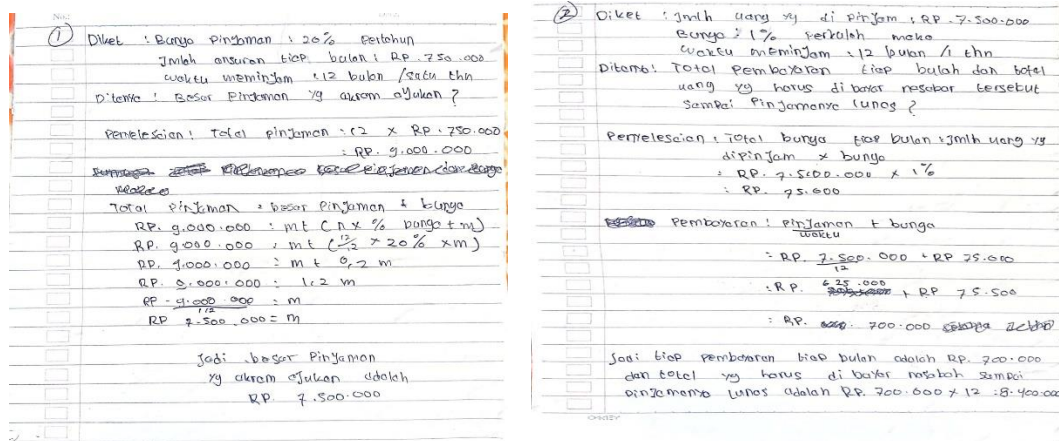 1 Diket : Bunga Pinjaman : 20% Pertahun
Jmlah ansuran tiap bulan : Rp. 750.000
waktu meminjam : 12 bulan / satu thn
Ditanya : Besar Pinjaman yg akram ajukan ?
Penyelesaian : Total pinjaman : 12 x RP. 750.000
: RP. 9.000.000
Total Pinjaman = besar Pinjaman & bunga
RP. 9.000.000 : m+ (n x % bunga + m)
RP. 9.000.000 : m+ (12/12 x 20% x m)
RP. 9.000.000 : m + 0,2 m
RP. 9.000.000 : 1,2 m
RP. 9.000.000 / 1,2 = m
RP 7.500.000 = m
Jadi besar Pinjaman
yg akram ajukan adalah
RP. 7.500.000
2 Diket : Jmlh uang yg di pinjam : RP. 7.500.000
Bunga : 1% perbulah maka
waktu meminjam : 12 bulan /1 thn
Ditanya : Total pembayaran tiap bulah dan botel
uang yg harus di bayar nasabar tersebut
sampai Pinjamanya lunas ?
Penyelesaian : Total bunga tiap bulan : Jmlh uang yg
dipinjam x bunga
: RP. 7.500.000 x 1%
: RP. 75.000
Pembayaran : pinjaman / waktu + bunga
: RP. 7.500.000 / 12 + RP 75.000
: RP. 625.000 + RP 75.500
: RP. 700.000
Jadi tiap pembayaran tiap bulan adalah RP. 700.000
dan total yg harus di bayar nasabah sampai
pinjamanya lunas adalah RP. 700.000 x 12 : 8.400.000